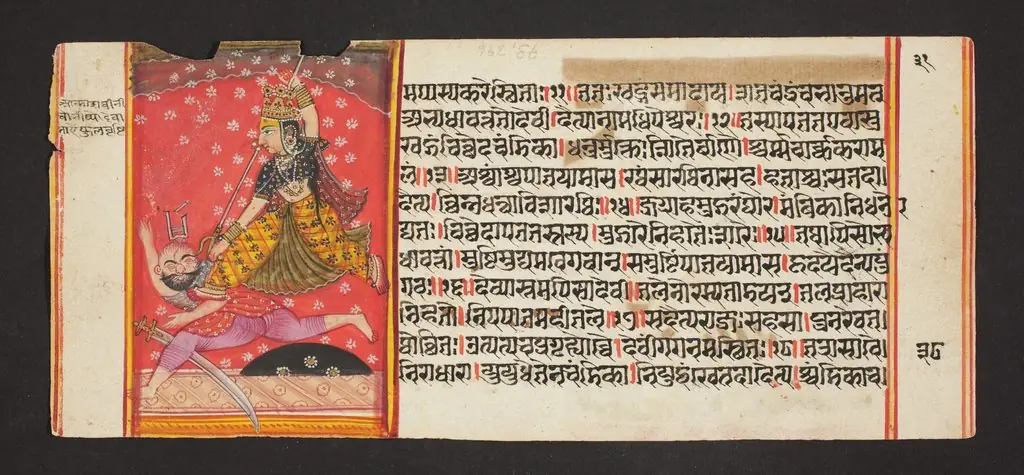 ३१
मप्यस्यकरेस्थितां।११।ततःखड्गमुपादाय।शतचंद्रंचभानुमत
अभ्यधावत्ततोदेवीं।दैत्यानामधिपेश्वरः।१२।तस्यापततएवाशु
खड्गंचिच्छेदचंडिका।धनुर्मुक्तैःशितैर्बाणैः।श्चर्मचार्ककराम
लं।१३।अश्वांश्चपातयामास।रथंसारथिनासह।हताश्वःसतदा
दैत्य।श्छिन्नधन्वाविसारथिः।१४।जग्राहमुद्गरंघोर।मंबिकानिधनो
द्यतः।चिच्छेदापततस्तस्य।मुद्गरंनिशितैःशरैः।१५।तथापिसोभ्य
धावत्तां।मुष्टिमुद्यम्यवेगवान्।समुष्टिंपातयामास।हृदयेदैत्यपुं
गवः।१६।देव्यास्तमपिसादेवी।तलेनोरस्यताडयत्।तलप्रहारा
भिहतो।निपपातमहीतले।१७।सदैत्यराजःसहसा।पुनरेवत
थोत्थितः।उत्पत्यचप्रगृह्योच्चै।र्देवींगगनमास्थितः।१८।तत्रापिसा
निराधारा।युयुधेतेनचंडिका।नियुद्धंखेतदादैत्य।श्चंडिकाच
३८